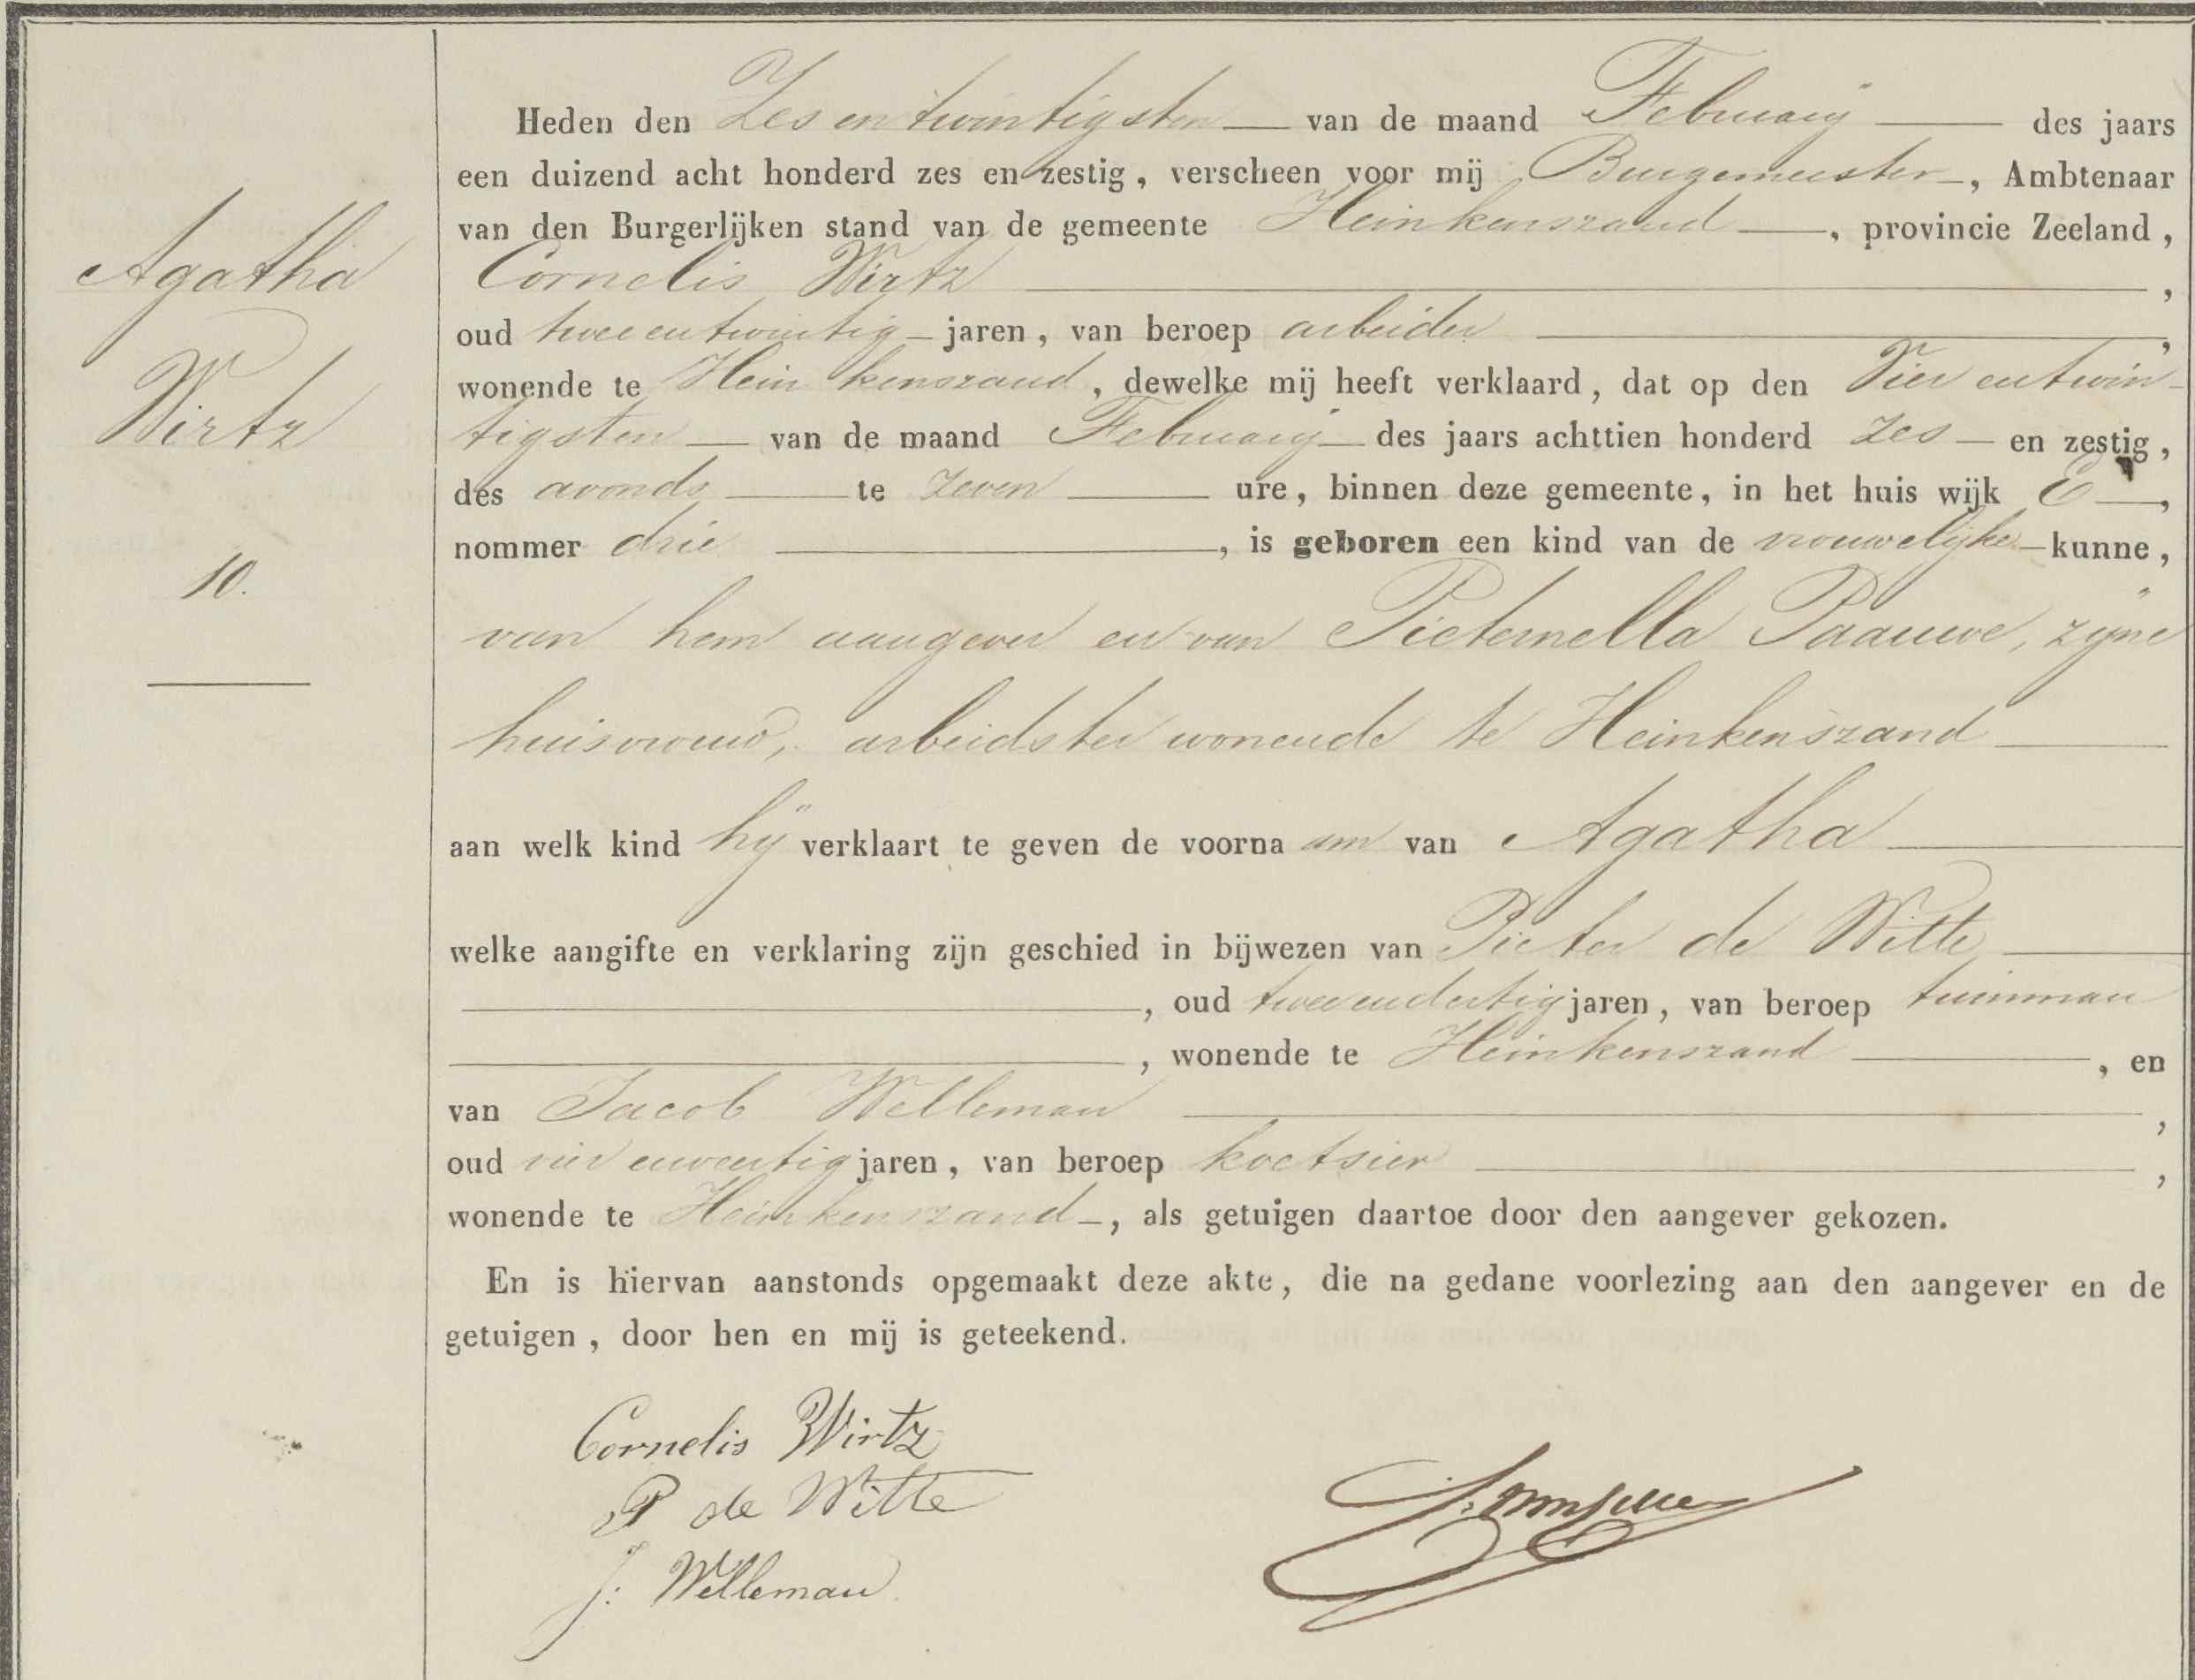 Agatha
Wirtz
10.
Heden den Zes en twintigsten van de maand Februarij des jaars
een duizend acht honderd zes en zestig, verscheen voor mij Burgemeester, Ambtenaar
van den Burgerlijken stand van de gemeente Heinkenszand, provincie Zeeland,
Cornelis Wirtz,
oud twee en twintig jaren, van beroep arbeider,
wonende te Heinkenszand, dewelke mij heeft verklaard, dat op den Vier en twin-
tigsten van de maand Februarij des jaars achttien honderd zes en zestig,
des avonds te zeven ure, binnen deze gemeente, in het huis wijk E,
nommer drie, is geboren een kind van de vrouwelijke kunne,
van hem aangever en van Pieternella Paauwe, zijne
huisvrouw, arbeidster wonende te Heinkenszand
aan welk kind hij verklaart te geven de voorna am van Agatha
welke aangifte en verklaring zijn geschied in bijwezen van Pieter de Witte
, oud twee en dertig jaren, van beroep tuinman
, wonende te Heinkenszand, en
van Jacob Welleman,
oud vier en jaren, van beroep koetsier,
wonende te Heinkenszand, als getuigen daartoe door den aangever gekozen.
En is hiervan aanstonds opgemaakt deze akte, die na gedane voorlezing aan den aangever en de
getuigen, door hen en mij is geteekend.
Cornelis Wirtz
P de Witte
J: Welleman